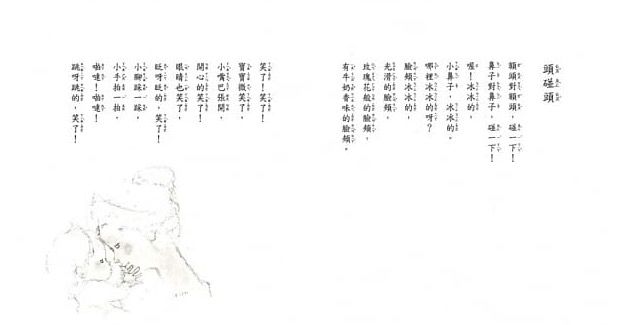 頭碰頭
額頭對額頭，碰一下！
鼻子對鼻子，碰一下！
喔！冰冰的，
小鼻子，冰冰的。
哪裡冰冰的呀？
臉頰冰冰的，
光滑的臉頰，
玫瑰花般的臉頰，
有牛奶香味的臉頰。
笑了！笑了！
寶寶微笑了，
小嘴巴張開，
開心的笑了！
眼睛也笑了，
眨呀眨的，笑了！
小腳踩一踩，
小手拍一拍，
啪噠！啪噠！
跳呀跳的，笑了！